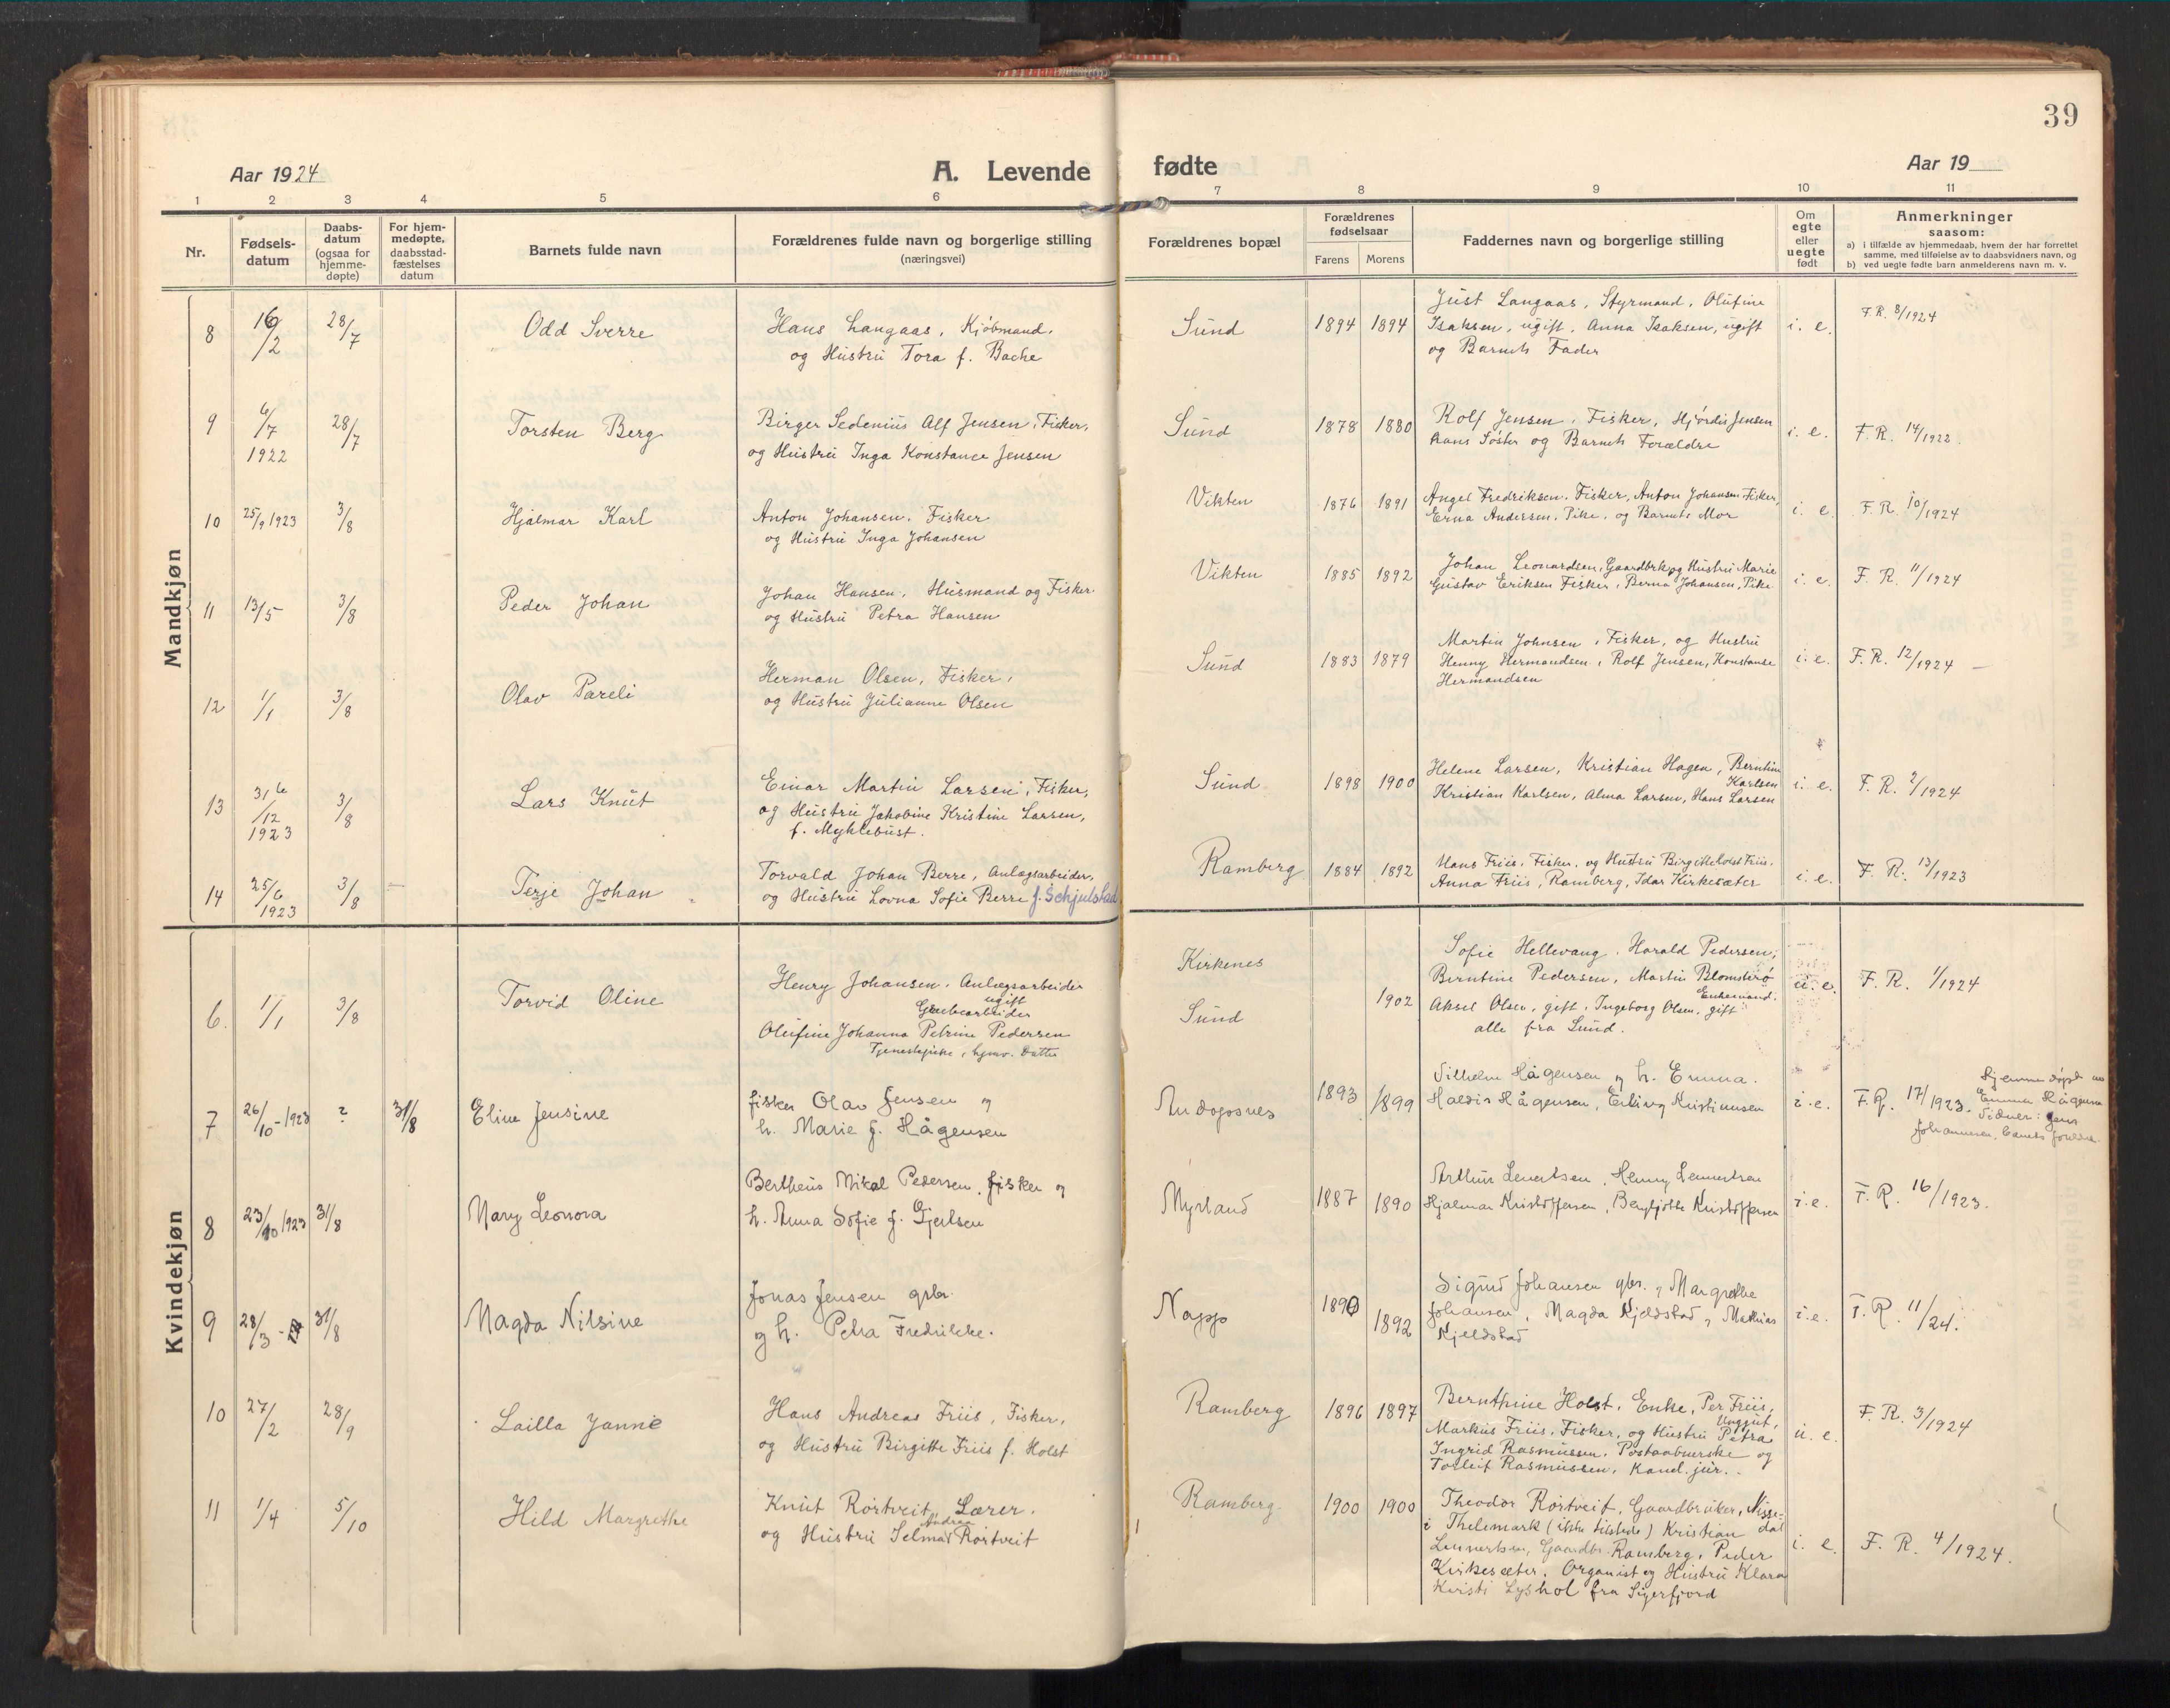 39
Aar 1924
A. Levende fødte
Aar 19
1 2 3 4 5 6 7 8 9 10 11
Nr.
Fødsels-
datum
Daabs-
datum
(ogsaa for
hjemme-
døpte)
For hjem-
medøpte,
daabsstad-
fæstelses
datum
Barnets fulde navn
Forældrenes fulde navn og borgerlige stilling
(næringsvei)
Forældrenes bopæl
Forældrenes
fødselsaar
Farens Morens
Faddernes navn og borgerlige stilling
Om
egte
eller
uegte
født
Anmerkninger
saasom:
a) i tilfælde av hjemmedaab, hvem der har forrettet
samme, med tilføielse av to daabsvidners navn, og
b) ved uegte fødte barn anmelderens navn m. v.
Mandkjøn
8 16/2 28/7 Odd Sverre
Hans Langaas, Kjöbmand,
og Hustru Tora f. Bache
Sund 1894 1894
Just Langaas, Styrmand, Olufine
Isaksen, ugift, Anna Isaksen, ugift
og Barnets Fader
i. e. F.R. 8/1924
9 6/7 1922 28/7 Torsten Berg
Birger Sedenius Alf Jensen, Fisker,
og Hustru Inga Konstance Jensen
Sund 1878 1880
Rolf Jensen, Fisker, Hjördis Jensen
hans Söster og Barnets Forældre
i. e. F.R. 14/1922.
10 25/9 1923 3/8 Hjalmar Karl
Anton Johansen, Fisker
og Hustru Inga Johansen
Vikten 1876 1891
Angel Fredriksen, Fisker, Anton Johansen Fisker,
Erna Andersen, Pike, og Barnets Mor
i. e. F.R. 10/1924
11 13/5 3/8 Peder Johan
Johan Hansen, Husmand og Fisker
og Hustru Petra Hansen
Vikten 1885 1892
Johan Leonardsen, Gaardbrk og Hustru Marie
Gustav Eriksen Fisker, Berna Johansen, Pike
i. e. F. R. 11/1924
12 1/1 3/8 Olav Pareli
Herman Olsen, Fisker,
og Hustru Julianne Olsen
Sund 1883 1879
Martin Johnsen, Fisker, og Hustru
Henny Hermandsen, Rolf Jensen, Konstanse
Hermandsen
i. e. F.R. 12/1924 —
13 31/12 1923 3/8 Lars Knut
Einar Martin Larsen, Fisker,
og Hustru Jakobine Kristine Larsen,
f. Myklebust.
Sund 1898 1900
Helene Larsen, Kristian Hagen, Berntine
Karlsen
Kristian Karlsen, Alma Larsen, Hans Larsen
i. e. F. R. 2/1924
14 25/6 1923 3/8 — Terje Johan
Torvald Johan Berre, Anlægsarbeider,
og Hustru Lovna Sofie Berre f. Schjulstad
Ramberg 1884 1892
Hans Friis, Fisker, og Hustru Birgitte Holst Friis.
Anna Friis, Ramberg, Idar Kirkesæter
i. e. F. R. 13/1923
Kvindekjøn
6. 1/1 3/8 Torvid Oline
Henry Johansen, Anlægsarbeider
ugift
Grubearbeider
Olufine Johanna Petrine Pedersen
Tjenestepike, hjmv. Datter
Kirkenes
Sund 1902
Sofie Hellevang, Harald Pedersen,
Berntine Pedersen, Martin Blomsterö
Enkemand.
Aksel Olsen, gift, Ingeborg Olsen, gift
alle fra Sund.
u. e. F. R. 1/1924
7 26/10-1923 ? 31/8 Eline Jensine
fisker Olav Jensen og
h. Marie f. Hågensen
Andopsnes 1893 1899
Vilhelm Hågensen og h. Emma.
Haldis Hågensen, Erling Kristiansen
i. e. F.R. 17/1923.
Hjemmedöpt av
Emma Hågensen
Vidner: Jens
Johannesen, barnets foreldre
8 23/10 1923 31/8 Mary Leonora
Bertheus Mikal Pedersen, fisker og
h. Anna Sofie f. Gjertsen
Myrland 1887 1890
Arthur Lenertsen, Henny Lennertsen
Hjalmar Kristoffersen, Bergljotte Kristoffersen
i. e. F. R. 16/1923.
9 28/3 31/8 Magda Nilsine
Jonas Jensen gbr.
og h. Petra Fredrikke.
Napp 1890 1892
Sigurd Johansen gbr. og Margrethe
Johansen, Magda Kjeldstad og Mathias
Kjeldstad
i. e. F. R. 11/24.
10 27/2 28/9 Lailla Jannie
Hans Andreas Friis, Fisker,
og Hustru Birgitte Friis f. Holst
Ramberg 1896 1897
Bernthine Holst, Enke, Per Friis,
Unggut,
Markus Friis, Fisker, og Hustru Petra
Ingrid Rasmussen, Postaabnerske og
Torleif Rasmussen, Kand. jur..
u. e. F. R. 3/1924
11 1/4 5/10 Hild Margrethe
Knut Rörtveit, Lærer.
Andrea
og Hustru Selma Rörtveit
Ramberg 1900 1900
Theodor Rörtveit, Gaardbruker, Nisse-
dal
i Thelemark (ikke tilstede) Kristian
Lennertsen, Gaardbr. Ramberg, Peder
Kirkesæter, Organist og Hustru Klara
Kirsti Lyshol fra Sigerfjord
i. e. F. R. 4/1924.